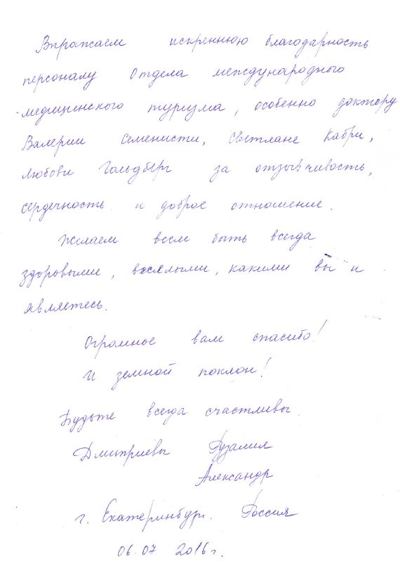 Выражаем искреннюю благодарность
персоналу Отдела международного
медицинского туризма, особенно доктору
Валерии Семенисти, Светлане Кабри,
Любови Гольдберг за отзывчивость,
сердечность и доброе отношение.
Желаем всем быть всегда
здоровыми, весёлыми, какими вы и
являетесь.
Огромное вам спасибо!
И земной поклон!
Будьте всегда счастливы.
Дмитриевы Рузалия
Александр
г. Екатеринбург. Россия
06.07 2016г.